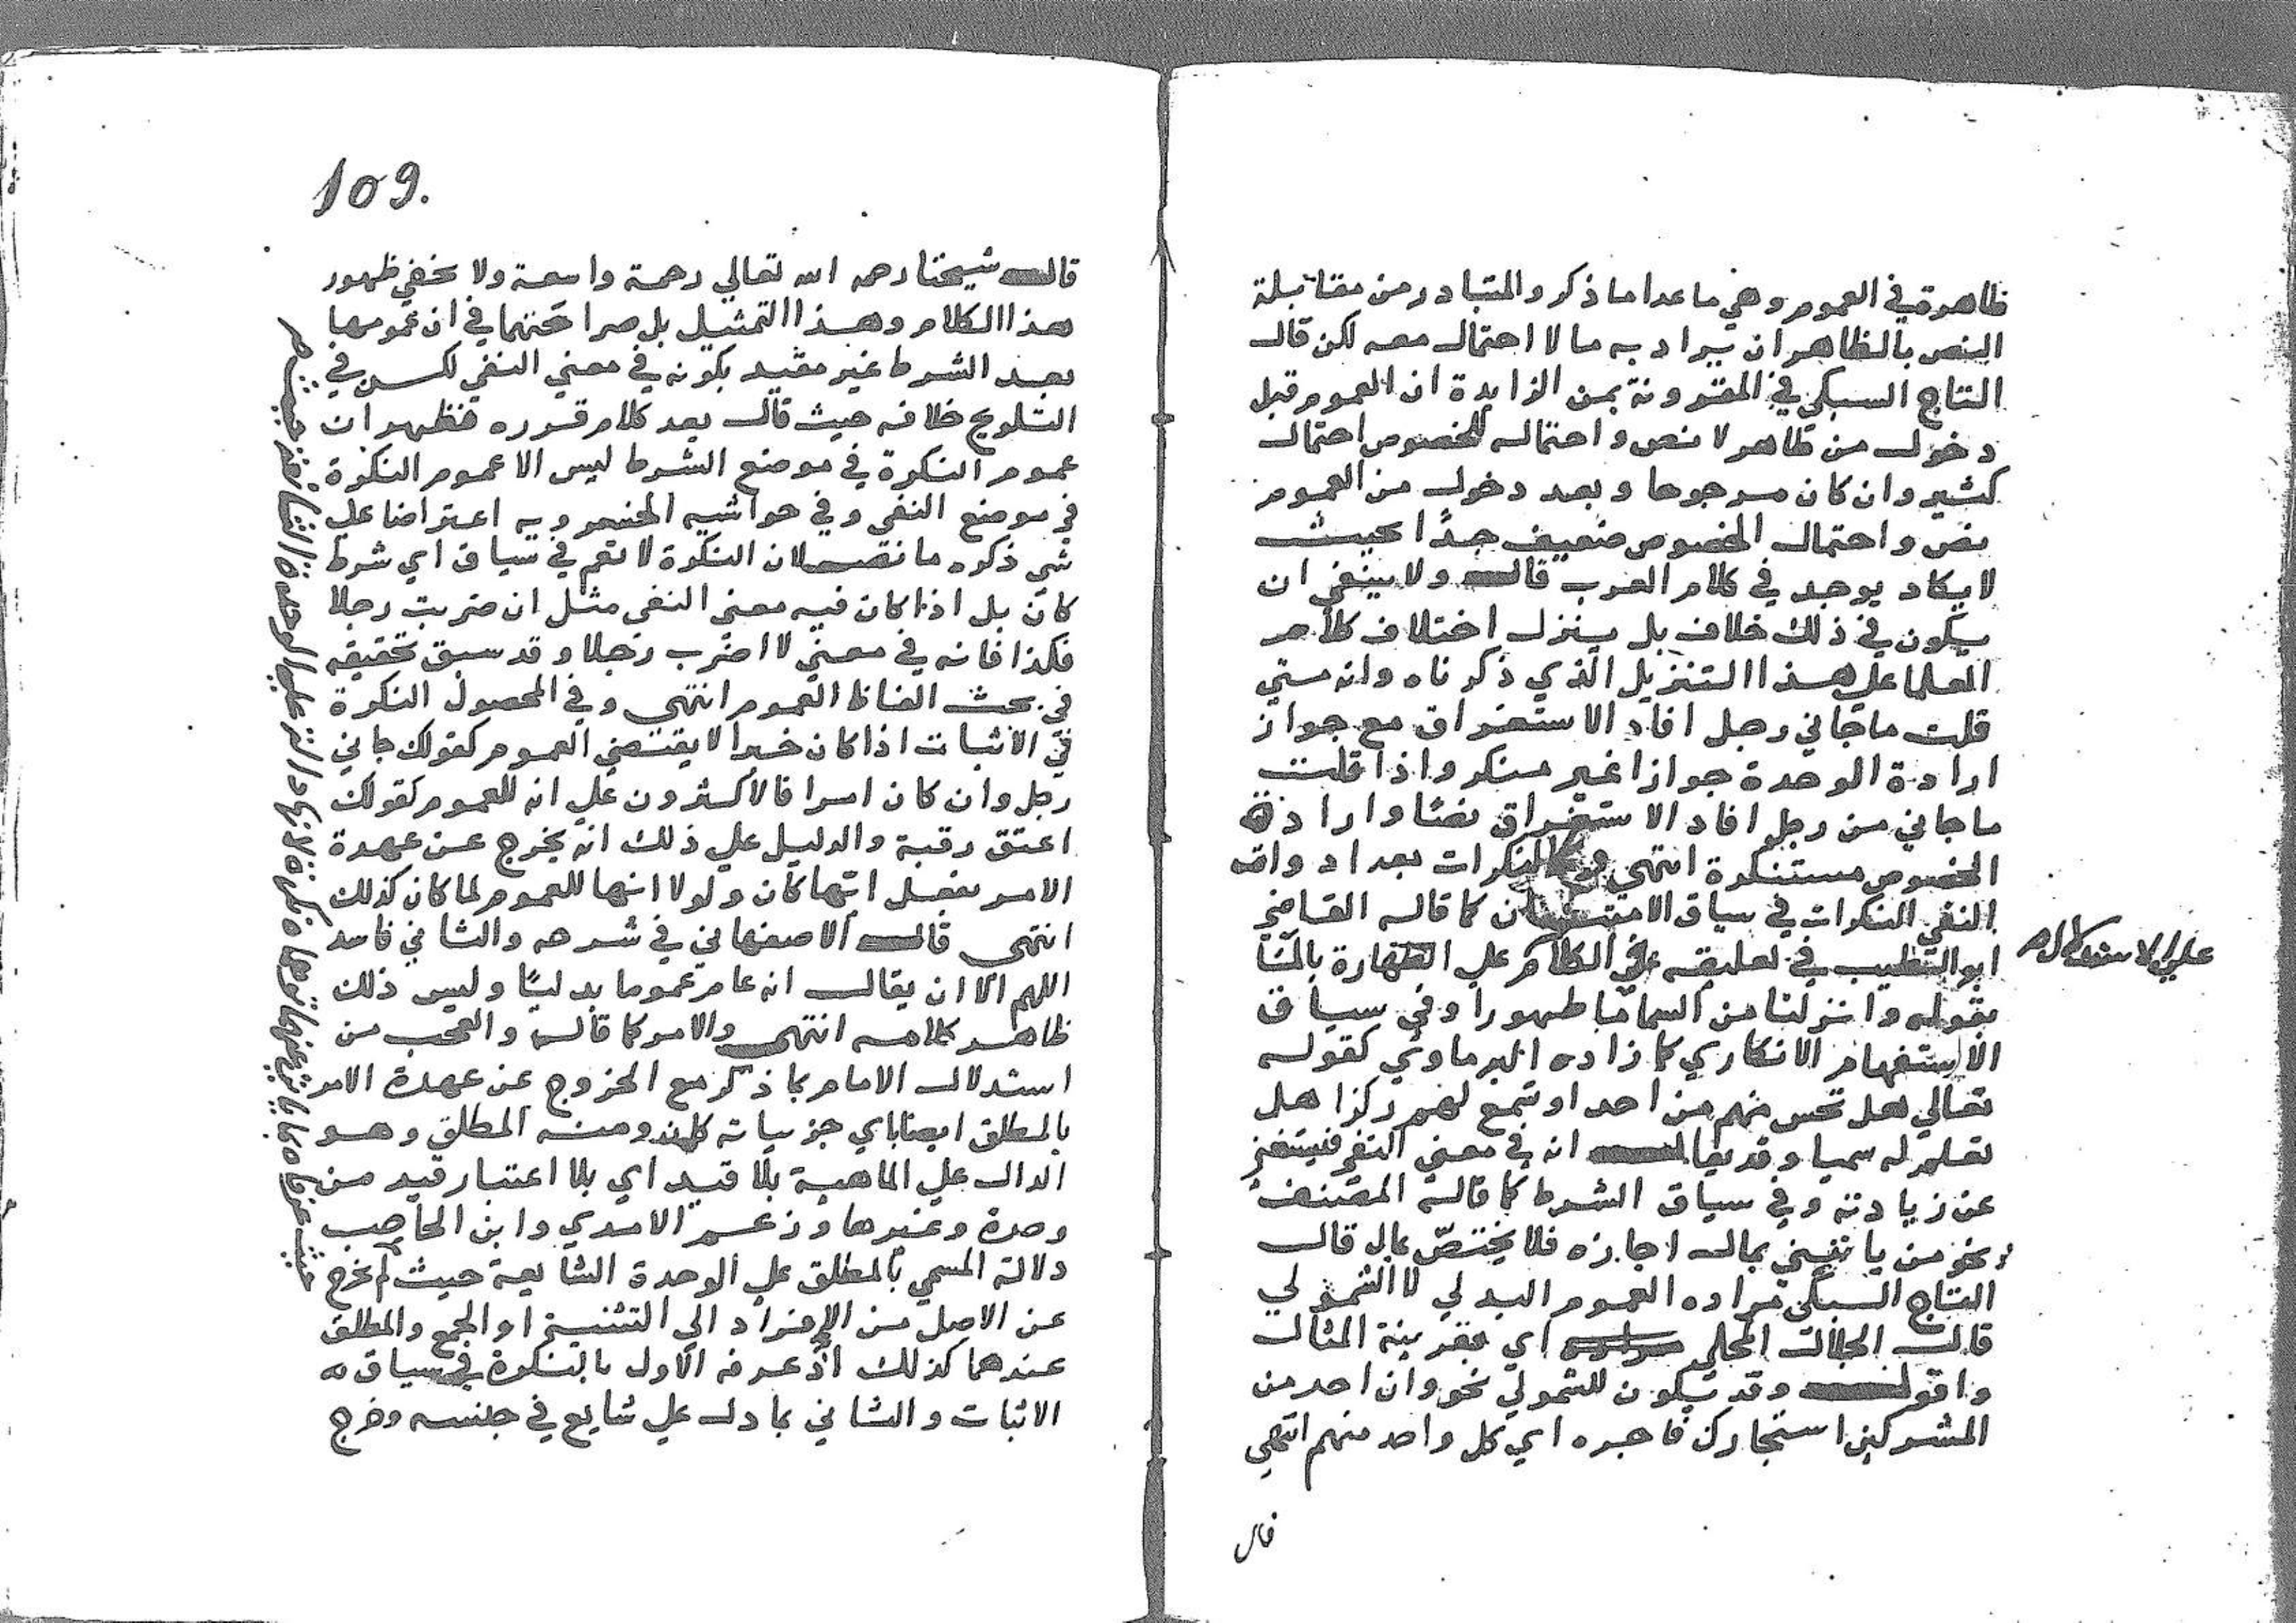 ظاهرة في العموم وهي ما عدا ما ذكر والمتبادر من مقابلة
النص بالظاهر ان يراد به ما لا احتمال معه لكن قال
التاج السبكي في المقرونة بمن الزايدة ان العموم قبل
دخول من ظاهر لا نص واحتمال الخصوص احتمال
كثير وان كان مرجوحا وبعد دخول من العموم
نص واحتمال الخصوص ضعيف جدًا بحيث
لا يكاد يوجد في كلام العرب قال ولا ينبغي ان
يكون في ذلك خلاف بل ينزل اختلاف كلام
العلما علي هذا التنزيل الذي ذكرناه وانه متي
قلت ما جاني رجل افاد الاستغراق مع جواز
ارادة الوحدة جوازا غير منكر واذا قلت
ما جاني من رجل افاد الاستغراق نصا وارادة
الخصوص مستنكرة انتهي وكالنكرات بعد ادوات
النفي النكرات في سياق الامتنان كما قاله القاضي
ابو الطيب في تعليقه في الكلام علي الطهارة بالما
علي الاستدلال
بقوله وانزلنا من السما ما طهورا وفي سياق
الاستفهام الانكاري كما زاده البرماوي كقوله
تعالي هل تحس منهم من احد او تسمع لهم ركزا هل
تعلم له سميا وقد يقال انه في معني النفي فيستغني
عن زيادته وفي سياق الشرط كما قاله المصنف
نحو من ياتيني بمال اجازه فلا يختص بمال قال
التاج السبكي مراده العموم البدلي لا الشمولي
قال الجلال المحلي اي بقرينة المثال
واقول وقد تكون للشمولي نحو وان احد من
المشركين استجارك فاجره اي كل واحد منهم انتهي
قال
109.
قال شيخنا رحمه الله تعالي رحمة واسعة ولا يخفي ظهور
هذا الكلام وهذا التمثيل بل صراحتهما في ان عمومها
بعد الشرط غير مقيد بكونه في معني النفي لكن في
التلويح خلافه حيث قال بعد كلام قرره فظهر ان
عموم النكرة في موضع الشرط ليس الا عموم النكرة
في موضع النفي وفي حواشيه الخسروية اعتراضا علي
شي ذكره ما نصه لان النكرة لا تعم في سياق اي شرط
كان بل اذا كان فيه معني النفي مثل ان ضربت رجلا
فكذا فانه في معني لا اضرب رجلا وقد سبق تحقيقه
في بحث الفاظ العموم انتهي وفي المحصول النكرة
في الاثبات اذا كان خبرا لا يقتضي العموم كقولك جاني
رجل وان كان امرا فالاكثرون علي انه للعموم كقولك
اعتق رقبة والدليل علي ذلك انه يخرج عن عهدة
الامر بفعل ايها كان ولولا انها للعموم لما كان كذلك
انتهي قال الاصفهاني في شرحه والثاني فاسد
اللهم الا ان يقال انه عام عموما بدليا وليس ذلك
ظاهر كلامه انتهي والامر كما قال والعجب من
استدلال الامام بما ذكر مع الخروج عن عهدة الامر
بالمطلق ايضا باي جزياته كان ومنه المطلق وهو
الدال علي الماهية بلا قيد اي بلا اعتبار قيد من
وحدة وغيرها وزعم الامدي وابن الحاجب
دلالة المسمي بالمطلق علي الوحدة الشايعة حيث لم تخرج
عن الاصل من الافراد الي التثنية او الجمع والمطلق
عندهما كذلك اذ عرفه الاول بالنكرة في سياق
الاثبات والثاني بما دل علي شايع في جنسه وخرج